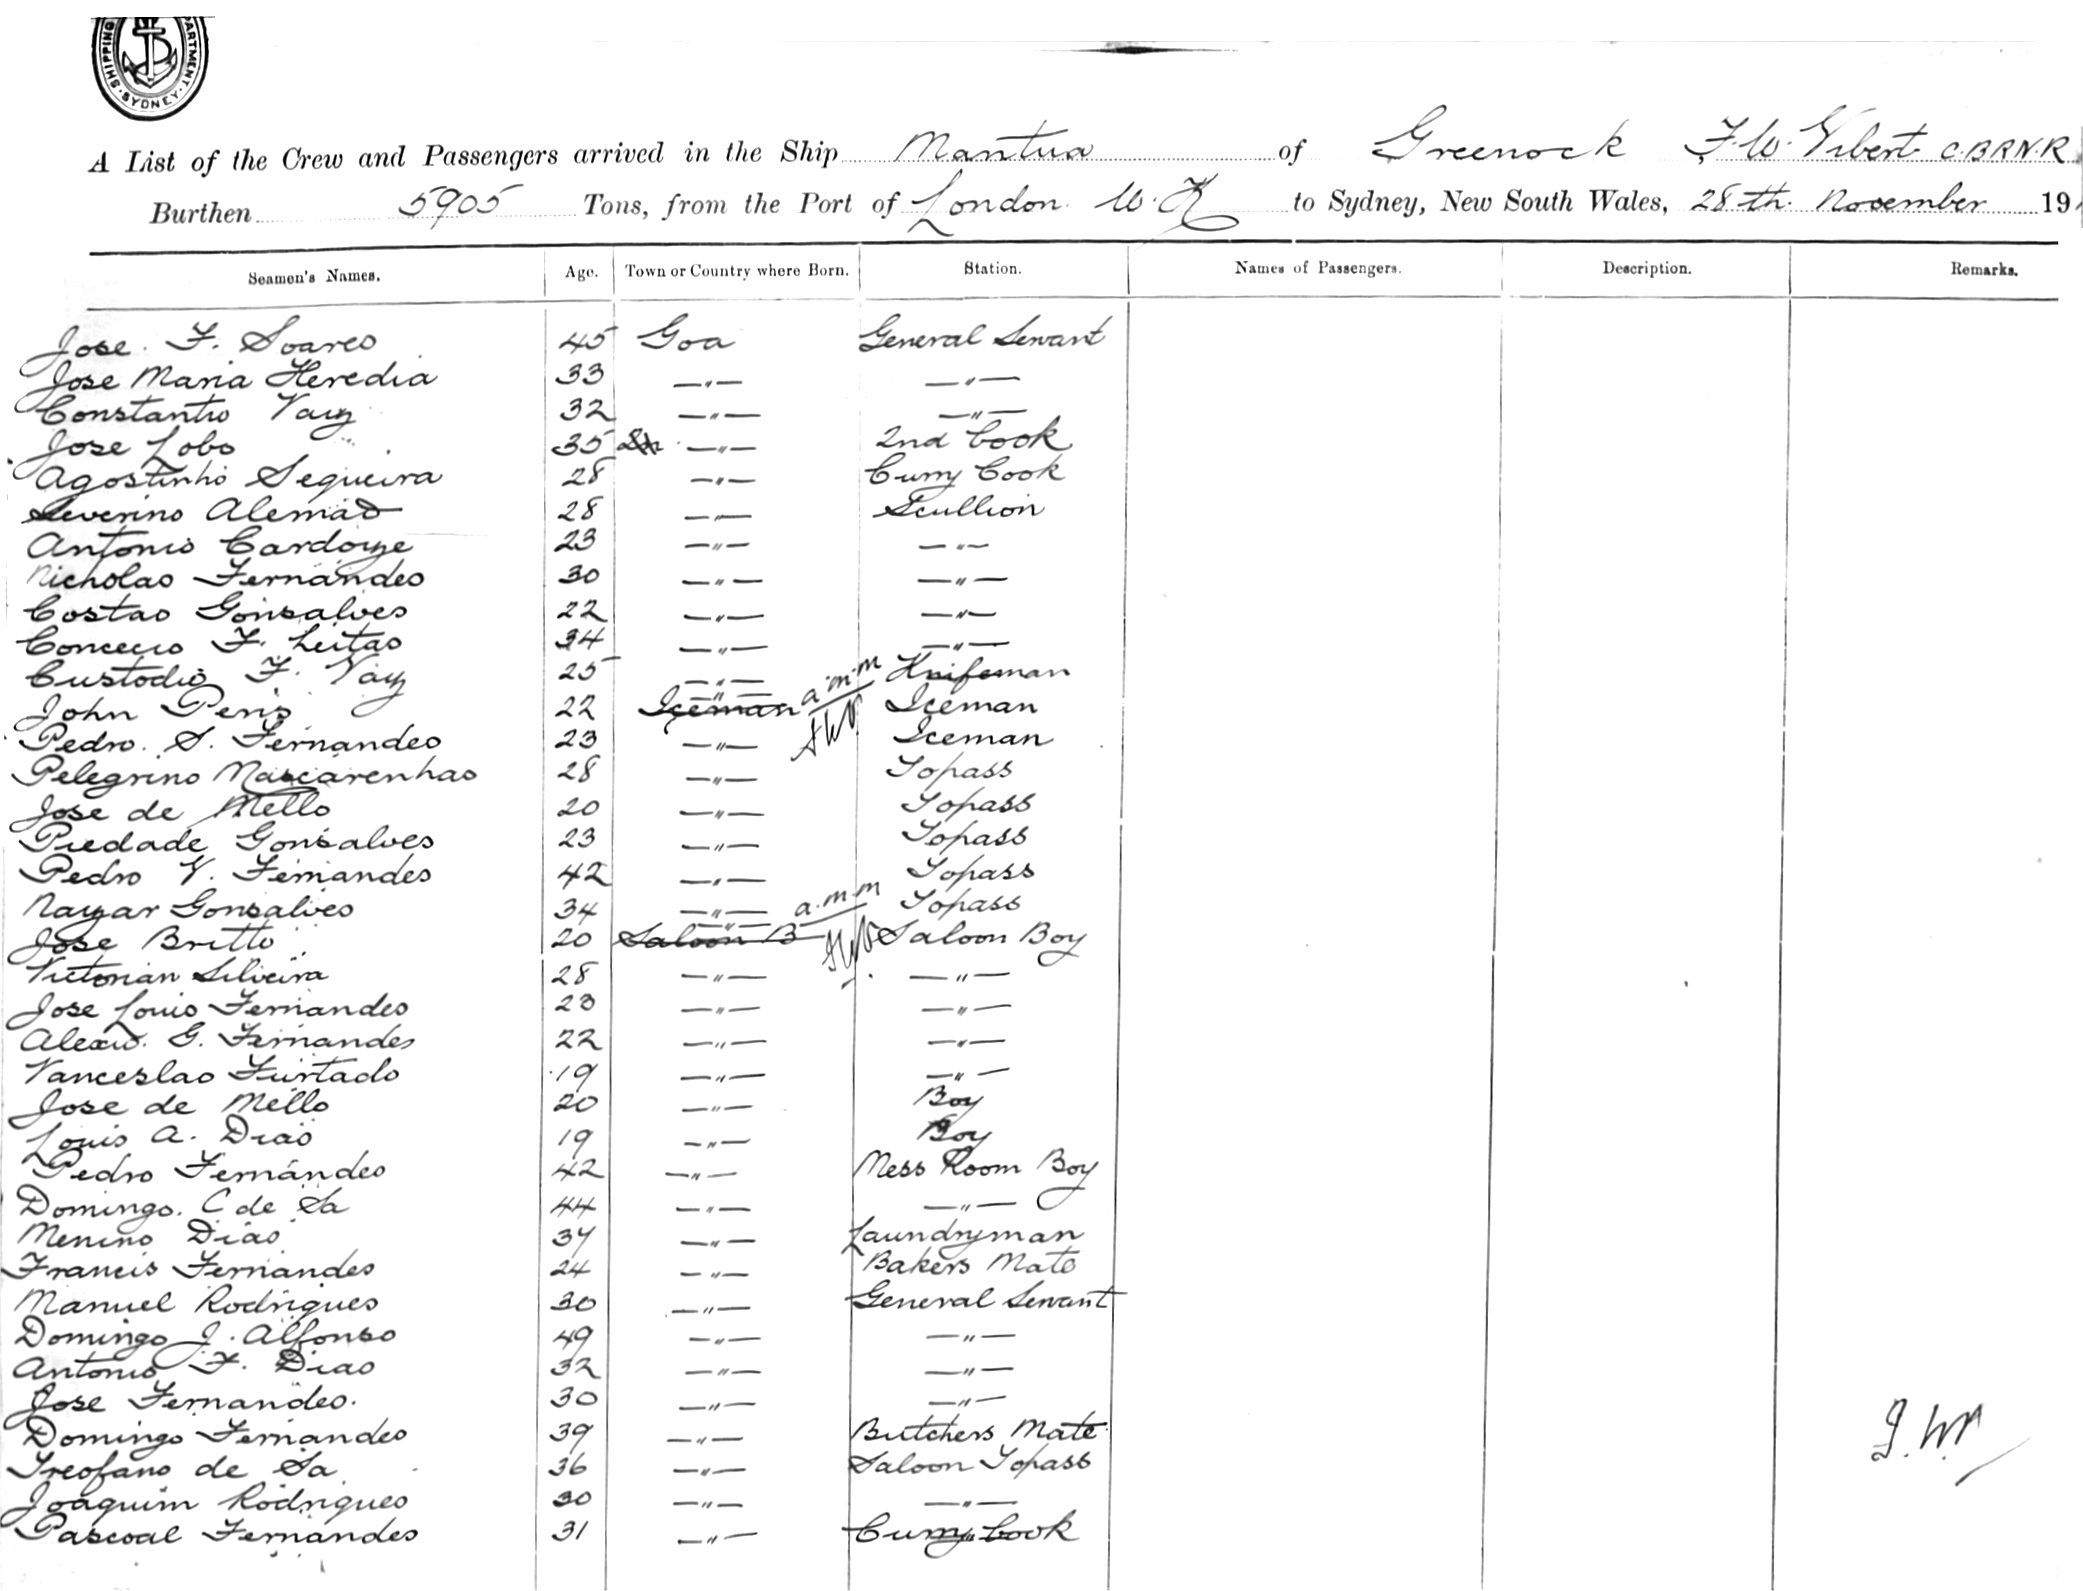 SHIPPING ARTMENT SYDNEY
A List of the Crew and Passengers arrived in the Ship Mantua of Greenock F. W. Vibert C.B R.N.R
Burthen 5905 Tons, from the Port of London. U.K to Sydney, New South Wales, 28th. November 19
Seamen's Names. Age. Town or Country where Born. Station. Names of Passengers. Description. Remarks.
Jose. F. Soares 45 Goa General Servant
Jose Maria Heredia 33 —"— —"—
Constantio Vaz 32 —"— —"—
Jose Lobo 35 —"— 2nd Cook
Agostinho Sequeira 28 —"— Curry Cook
Severino Alemao 28 —"— Scullion
Antonio Cardoze 23 —"— —"—
Nicholas Fernandes 30 —"— —"—
Costao Gonsalves 22 —"— —"—
Concecio F. Leitao 34 —"— —"—
Custodio F. Vaz 25 —"— Knifeman
John Peris 22 Iceman —"— a.m.m Iceman
Pedro. S. Fernandes 23 —"— Iceman
Pelegrino Mascarenhas 28 —"— Topass
Jose de Mello 20 —"— Topass
Piedade Gonsalves 23 —"— Topass
Pedro V. Fernandes 42 —"— Topass
Nazar Gonsalves 34 —"— a.m.m Topass
Jose Britto 20 Saloon B —"— Saloon Boy
Victorian Silveira 28 —"— —"—
Jose Louis Fernandes 23 —"— —"—
Alexo. G. Fernandes 22 —"— —"—
Vanceslao Furtado 19 —"— —"—
Jose de Mello 20 —"— Boy
Louis A. Dias 19 —"— Boy
Pedro Fernandes 42 —"— Mess Room Boy
Domingo. C de Sa 44 —"— —"—
Menino Dias 34 —"— Laundryman
Francis Fernandes 24 —"— Bakers Mate
Manuel Rodrigues 30 —"— General Servant
Domingo J. Alfonso 49 —"— —"—
Antonio F. Dias 32 —"— —"—
Jose Fernandes. 30 —"— —"—
Domingo Fernandes 39 —"— Butchers Mate
Treofano de Sa 36 —"— Saloon Topass
Joaquim Rodrigues 30 —"— —"—
Pascoal Fernandes 31 —"— Curry Cook